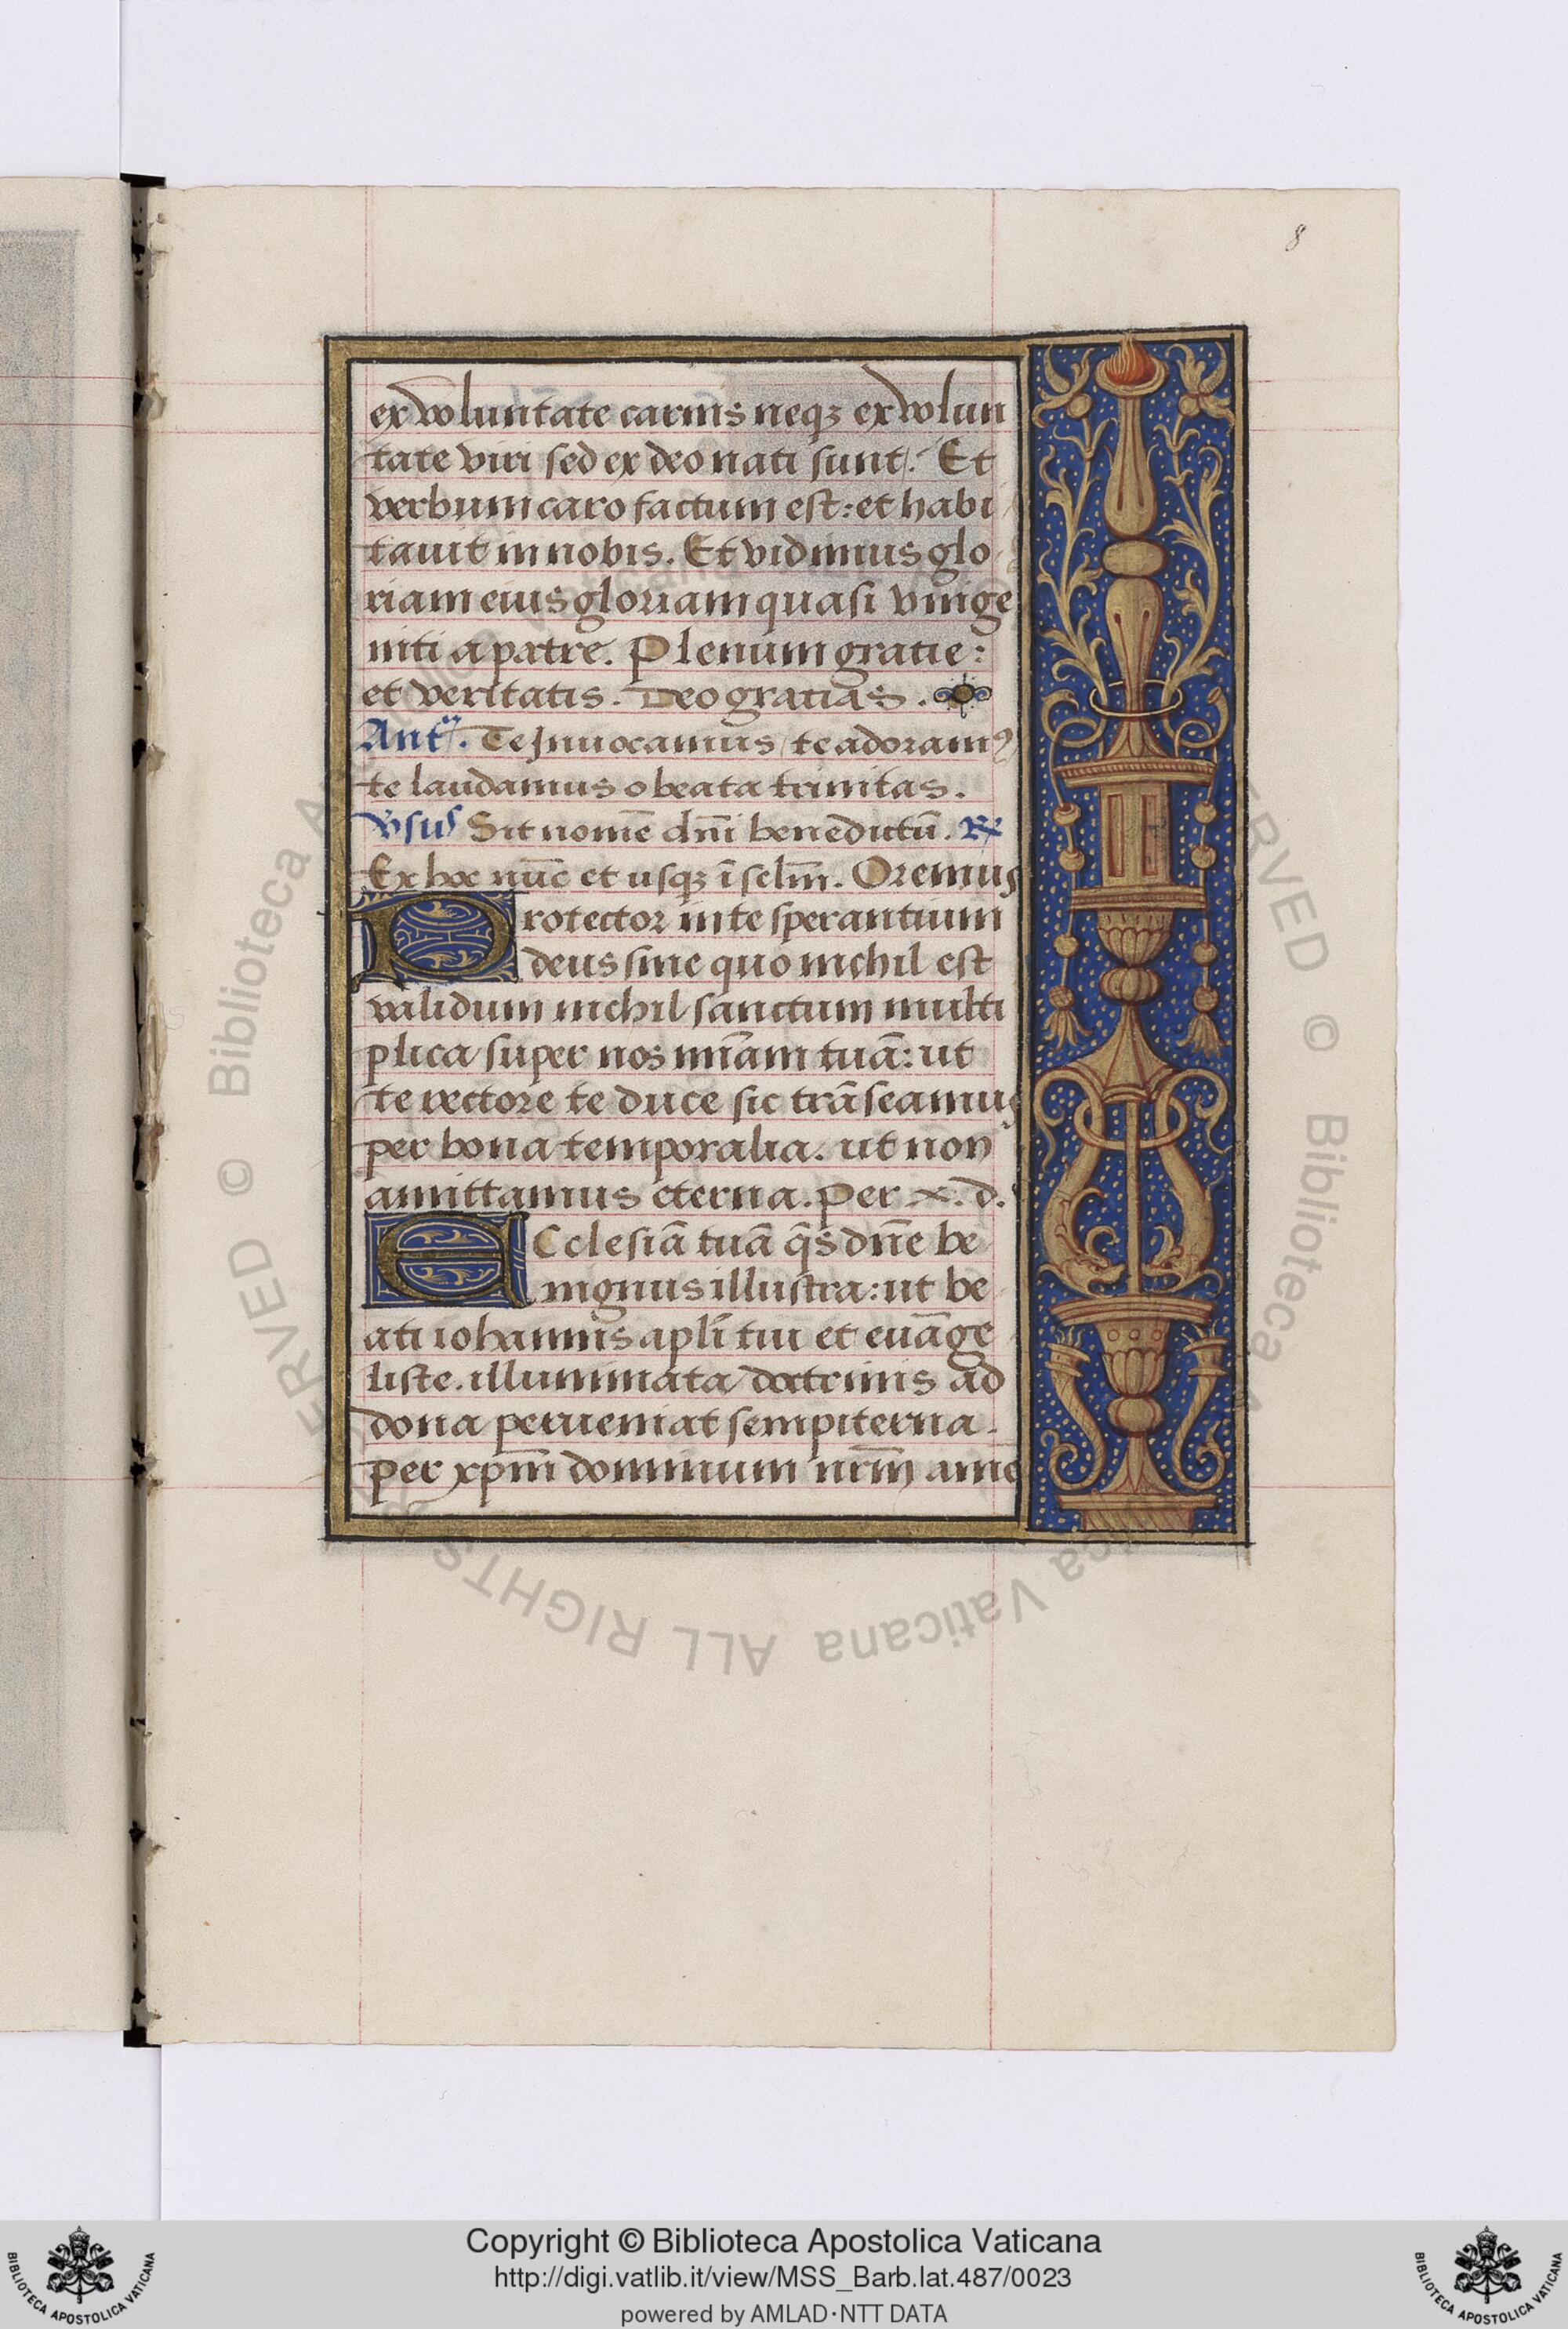 8
ex voluntate carnis neqꝫ ex volun
tate viri sed ex deo nati sunt. Et
verbum caro factum est: et habi
tauit in nobis. Et vidimus glo
riam eius gloriam quasi vnige
niti a patre. Plenum gratie:
et veritatis. Deo gratias.
Antᵃ. Te Jnuocamus / te adoramꝰ
te laudamus o beata trinitas.
Vsus Sit nomē dn̄i benedictū. ℞
Ex hoc nūc et usqꝫ ī sclm̄. Oremus
Protector in te sperantium
deus sine quo nichil est
validum nichil sanctum multi
plica super nos mīam tuā: ut
te rectore te duce sic trāseamus
per bona temporalia. ut non
amittamus eterna. Per x. d.
ECclesiā tuā q̄s dn̄e be
nignus illustra: ut be
ati iohannis apli̅ tui et euāge
liste. illuminata doctrinis ad
dona perueniat sempiterna.
per xp̄m dominum nr̄m ame
Copyright © Biblioteca Apostolica Vaticana
http://digi.vatlib.it/view/MSS_Barb.lat.487/0023
powered by AMLAD·NTT DATA
BIBLIOTECA APOSTOLICA VATICANA
BIBLIOTECA APOSTOLICA VATICANA
© Biblioteca Apostolica Vaticana ALL RIGHTS RESERVED